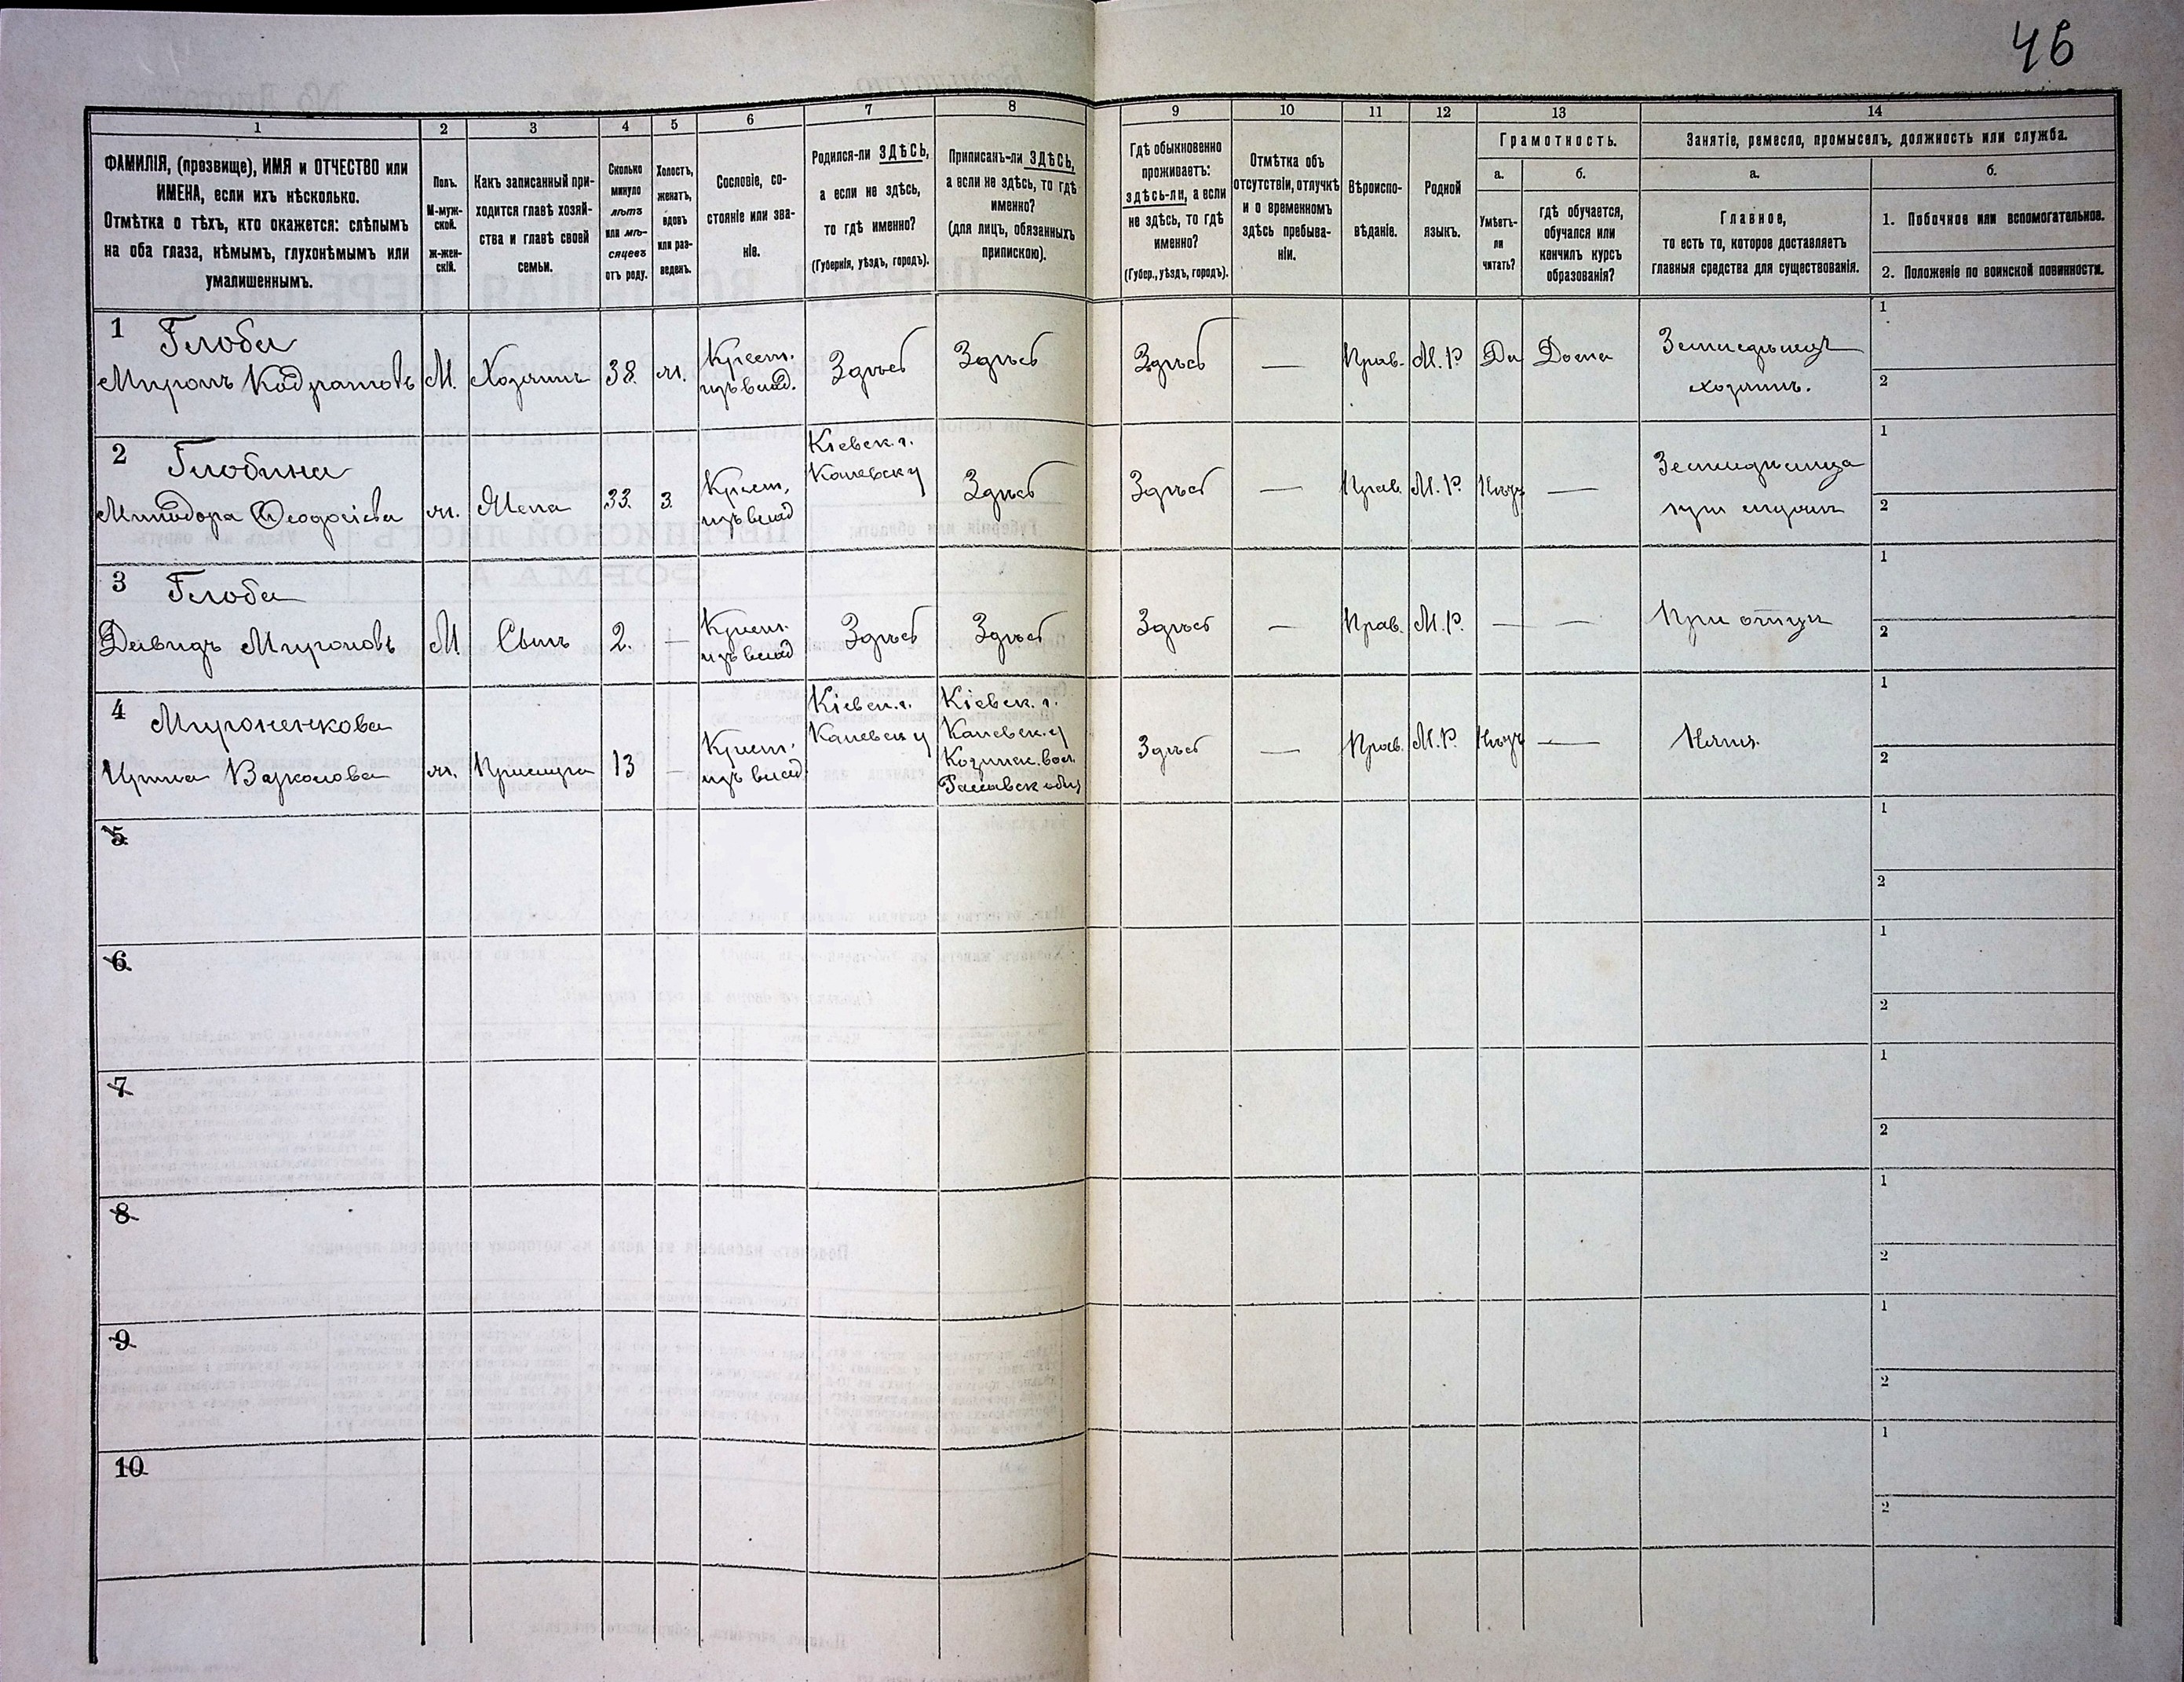 46
1
2
3
4
5
6
7
8
9
10
11
12
13
14
ФАМИЛІЯ, (прозвище), ИМЯ и ОТЧЕСТВО или
ИМЕНА, если ихъ нѣсколько.
Отмѣтка о тѣхъ, кто окажется: слѣпымъ
на оба глаза, нѣмымъ, глухонѣмымъ или
умалишеннымъ.
Полъ.
М-муж-
ской.
ж-жен-
скій.
Какъ записанный при-
ходится главѣ хозяй-
ства и главѣ своей
семьи.
Сколько
минуло
лѣтъ
или мѣ-
сяцевъ
отъ роду.
Холостъ,
женатъ,
вдовъ
или раз-
веденъ.
Сословіе, со-
стояніе или зва-
ніе.
Родился-ли ЗДѢСЬ,
а если не здѣсь,
то гдѣ именно?
(Губернія, уѣздъ, городъ).
Приписанъ-ли ЗДѢСЬ,
а если не здѣсь, то гдѣ
именно?
(для лицъ, обязанныхъ
припискою).
Гдѣ обыкновенно
проживаетъ:
здѣсь-ли, а если
не здѣсь, то гдѣ
именно?
(Губер., уѣздъ, городъ).
Отмѣтка объ
отсутствіи, отлучкѣ
и о временномъ
здѣсь пребыва-
ніи.
Вѣроиспо-
вѣданіе.
Родной
языкъ.
Грамотность.
а.
б.
Умѣетъ-
ли
читать?
гдѣ обучается,
обучался или
кончилъ курсъ
образованія?
Занятіе, ремесло, промыселъ, должность или служба.
а.
б.
Главное,
то есть то, которое доставляетъ
главныя средства для существованія.
1. Побочное или вспомогательное.
2. Положеніе по воинской повинности.
1 Глоба
Миронъ Кадратовъ
М.
Хозяинъ
38.
ж.
Крест.
изъ влад.
Здѣсь
Здѣсь
Здѣсь
—
Прав.
М. Р.
Да
Дома
Земледѣлецъ
хозяинъ.
1
2
2 Глобина
Минодора Феодосіева
ж.
Жена
33.
з.
Крест.
изъ влад
Кіевск. г.
Каневск у
Здѣсь
Здѣсь
—
Прав.
М. Р.
Нѣтъ
—
Земледѣлица
при мужѣ
1
2
3 Глоба
Давидъ Мироновъ
М
Сынъ
2.
—
Крест.
изъ влад
Здѣсь
Здѣсь
Здѣсь
—
Прав.
М. Р.
—
—
При отцѣ
1
2
4 Мироненкова
Ирина Варконова
ж.
Прислуга
13
—
Крест.
изъ влад.
Кіевск. г.
Каневск у
Кіевск. г.
Каневск. у
Козинск. вол.
Здѣсь
—
Прав.
М. Р.
Нѣтъ
—
Няня.
1
2
5
1
2
6
1
2
7
1
2
8
1
2
9
1
2
10
1
2